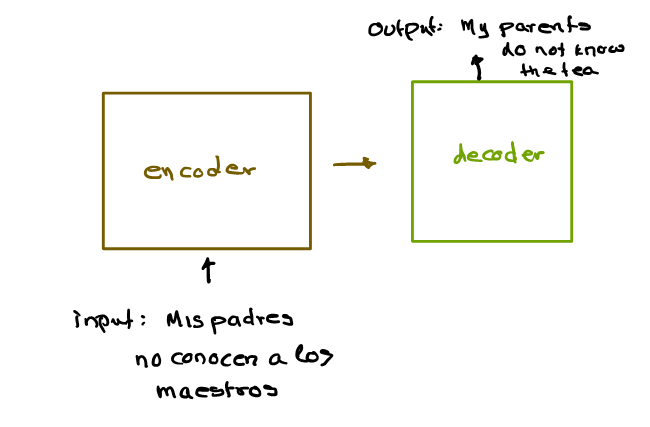 Output: My parents
do not know
the tea
encoder
decoder
input: Mis padres
no conocen a los
maestros